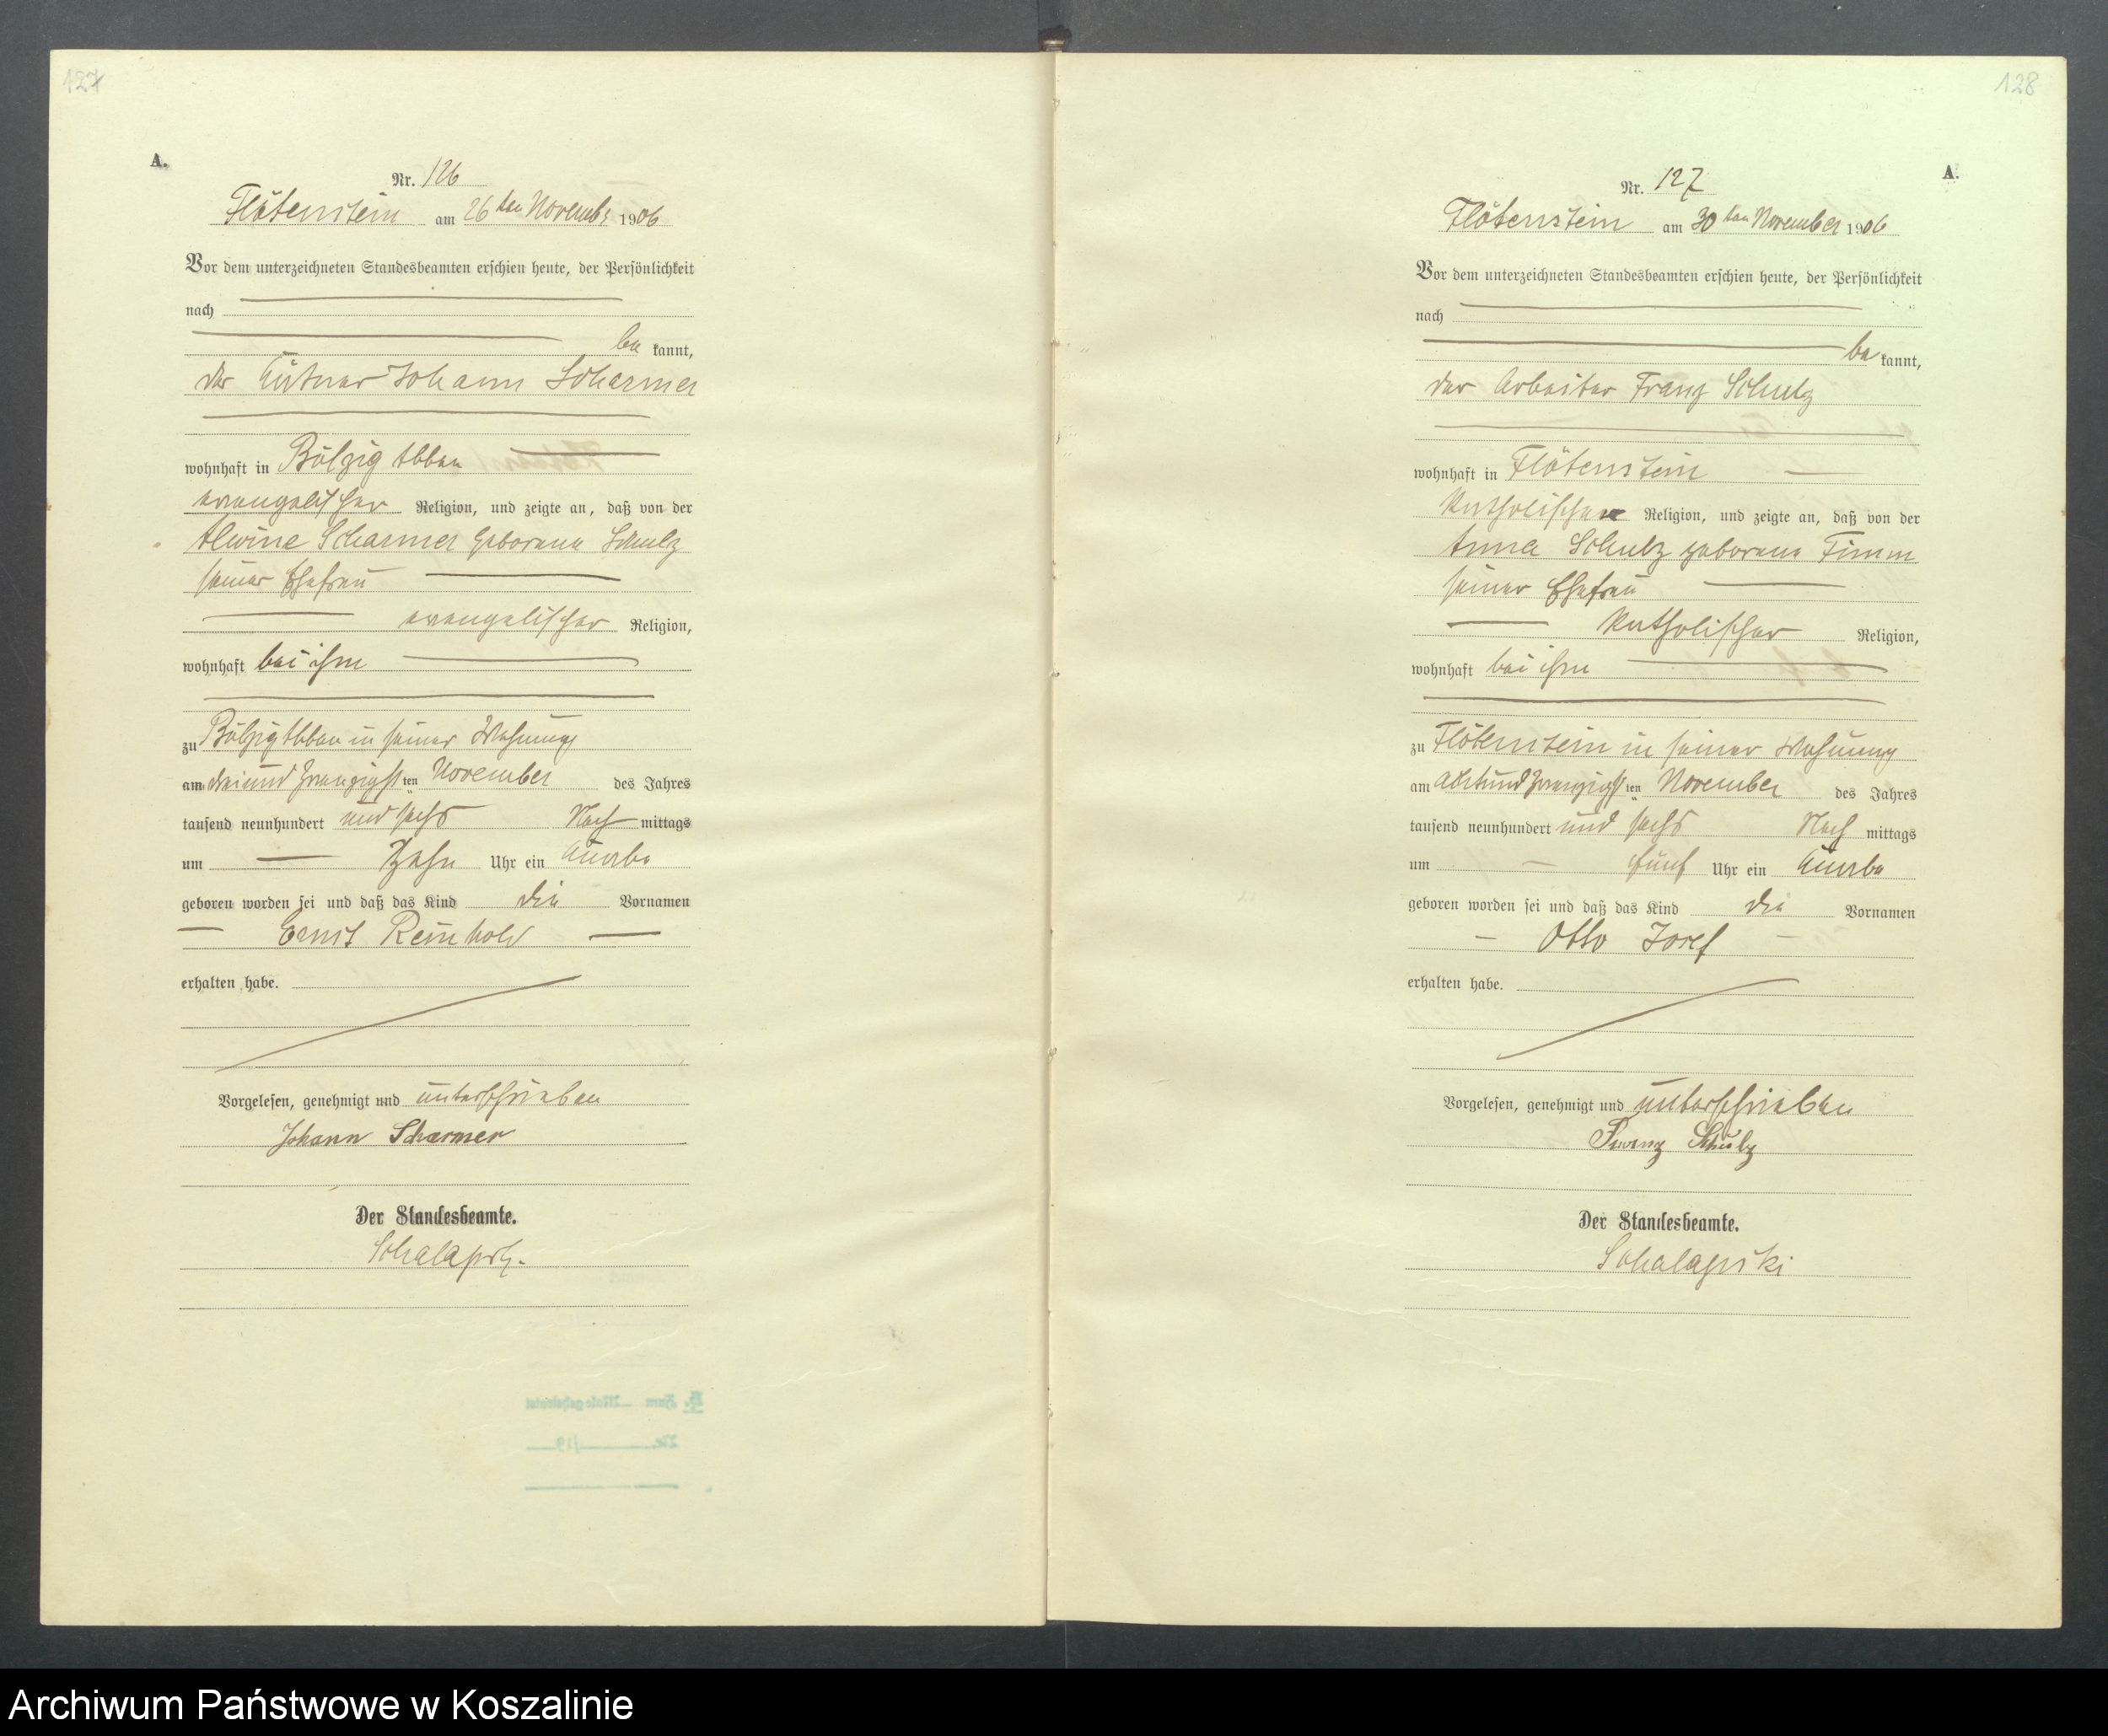 127
A.
Nr. 126
Flötenstein am 26ten Novembr 1906
Vor dem unterzeichneten Standesbeamten erschien heute, der Persönlichkeit
nach
be kannt,
der Johann Scharmer
wohnhaft in Bölzig Abbau
evangelischer Religion, und zeigte an, daß von der
Alwine Scharmer geborene Schulz
seiner Ehefrau
evangelischer Religion,
wohnhaft bei ihm
zu Bölzig Abbau in seiner Wohnung
am dreiundzwanzigsten November des Jahres
tausend neunhundert und sechs Nach mittags
um Zehn Uhr ein Knabe
geboren worden sei und daß das Kind die Vornamen
Ernst Reinhold
erhalten habe.
Vorgelesen, genehmigt und unterschrieben
Johann Scharmer
Der Standesbeamte.
128
A.
Nr. 127
Flötenstein am 30ten November 1906
Vor dem unterzeichneten Standesbeamten erschien heute, der Persönlichkeit
nach
be kannt,
der Arbeiter Franz Schulz
wohnhaft in Flötenstein
katholischer Religion, und zeigte an, daß von der
Anna Schulz geborene Timm
seiner Ehefrau
katholischer Religion,
wohnhaft bei ihm
zu Flötenstein in seiner Wohnung
am achtundzwanzigsten November des Jahres
tausend neunhundert und sechs Nach mittags
um fünf Uhr ein Knabe
geboren worden sei und daß das Kind die Vornamen
Otto Josef
erhalten habe.
Vorgelesen, genehmigt und unterschrieben
Franz Schulz
Der Standesbeamte.
Schalapski
Archiwum Państwowe w Koszalinie